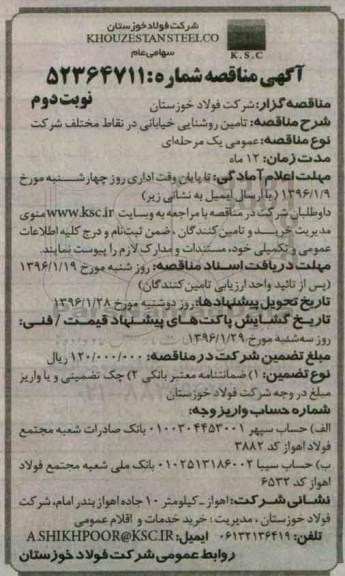 شرکت فولاد خوزستان
KHOUZESTAN STEEL CO
سهامی عام
K.S.C
آگهی مناقصه شماره: ۵۲۳۶۴۷۱۱
نوبت دوم
مناقصه گزار: شرکت فولاد خوزستان
شرح مناقصه: تامین روشنایی خیابانی در نقاط مختلف شرکت
نوع مناقصه: عمومی یک مرحله‌ای
مدت زمان: ۱۲ ماه
مهلت اعلام آمادگی: تا پایان وقت اداری روز چهارشنبه مورخ
۱۳۹۶/۱/۹ (با ارسال ایمیل به نشانی زیر)
داوطلبان شرکت در مناقصه با مراجعه به وبسایت www.ksc.ir منوی
مدیریت خرید و تامین کنندگان ، ضمن ثبت‌نام و درج کلیه اطلاعات
عمومی و تکمیلی خود، مستندات و مدارک لازم را پیوست نمایند.
مهلت دریافت اسناد مناقصه: روز شنبه مورخ ۱۳۹۶/۱/۱۹
(پس از تائید واحد ارزیابی تامین کنندگان)
تاریخ تحویل پیشنهادها: روز دوشنبه مورخ ۱۳۹۶/۱/۲۸
تاریخ گشایش پاکت‌های پیشنهاد قیمت / فنی:
روز سه‌شنبه مورخ ۱۳۹۶/۱/۲۹
مبلغ تضمین شرکت در مناقصه: ۱۲۰/۰۰۰/۰۰۰ ریال
نوع تضمین: ۱) ضمانتنامه معتبر بانکی ۲) چک تضمینی و یا واریز
مبلغ در وجه شرکت فولاد خوزستان
شماره حساب واریز وجه:
الف) حساب سپهر ۰۱۰۰۳۰۴۴۵۳۰۰۱ بانک صادرات شعبه مجتمع
فولاد اهواز کد ۳۸۸۲
ب) حساب سیبا ۰۱۰۲۵۱۳۱۸۶۰۰۲ بانک ملی شعبه مجتمع فولاد
اهواز کد ۶۵۳۲
نشانی شرکت: اهواز ـ کیلومتر ۱۰ جاده اهواز بندر امام، شرکت
فولاد خوزستان ، مدیریت: خرید خدمات و اقلام عمومی
تلفن: ۰۶۱۳۲۱۳۶۴۱۹ ایمیل: A.SHIKHPOOR@KSC.IR
روابط عمومی شرکت فولاد خوزستان